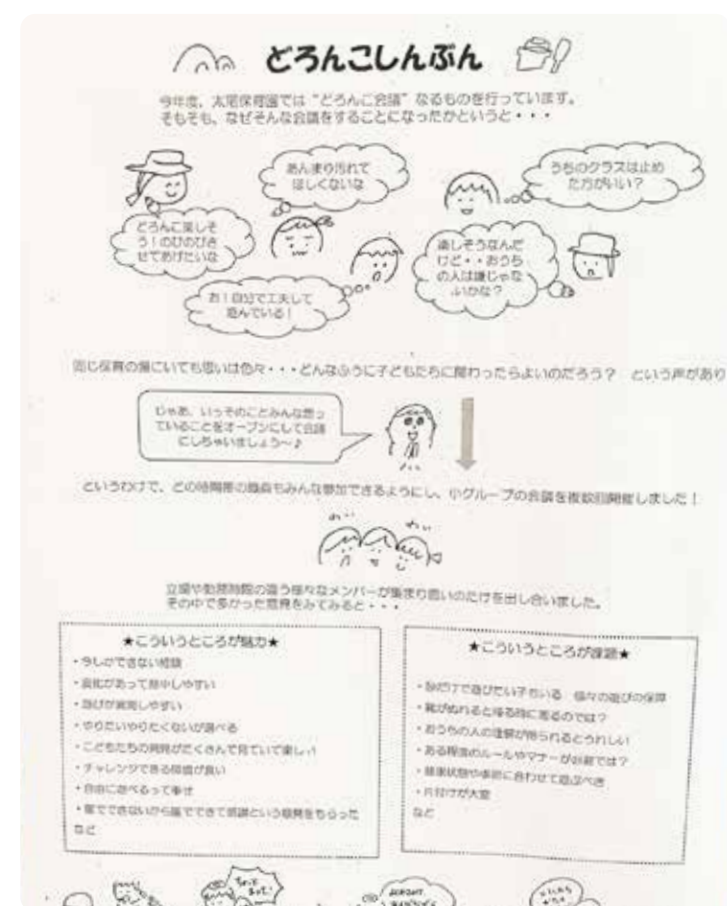 どろんこしんぶん
今年度、太尾保育園では“どろんこ会議”なるものを行っています。
そもそも、なぜそんな会議をすることになったかというと・・・
あんまり汚れて
ほしくないな
うちのクラスは止め
た方がいい？
どろんこ楽しそ
う！のびのびさ
せてあげたいな
楽しそうなんだ
けど・・おうち
の人は嫌じゃな
いかな？
お！自分で工夫して
遊んでいる！
同じ保育の場にいても思いは色々・・・どんなふうに子どもたちに関わったらよいのだろう？　という声があり
じゃあ、いっそのことみんな思っ
ていることをオープンにして会議
にしちゃいましょう～♪
というわけで、どの時間帯の職員もみんな参加できるようにし、小グループの会議を複数回開催しました！
わい
わい
立場や勤務時間の違う様々なメンバーが集まり思いのたけを出し合いました。
その中で多かった意見をみてみると・・・
★こういうところが魅力★
・今しかできない経験
・変化があって熱中しやすい
・遊びが展開しやすい
・やりたいやりたくないが選べる
・こどもたちの発見がたくさんで見ていて楽しい
・チャレンジできる環境が良い
・自由に遊べるって幸せ
・家でできないから園でできて感謝という意見をもらった
など
★こういうところが課題★
・砂だけで遊びたい子もいる　様々な遊びの保障
・靴がぬれると帰る時に困るのでは？
・おうちの人の理解が得られるとうれしい
・ある程度のルールやマナーが必要では？
・健康状態や季節に合わせて遊ぶべき
・片付けが大変
など